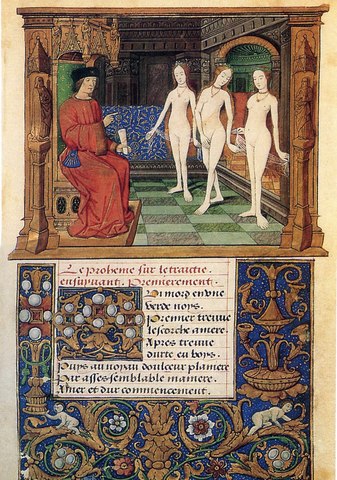 Le proheme sur le traictie
ensuyuant. Premierement.
Qui mord en une
verde noys.
Premier treuue
lescorche amere.
Apres treuue
durte eu boys.
Puys au noyau douleur planiere
Par asses semblable maniere.
Amer et dur commencement.